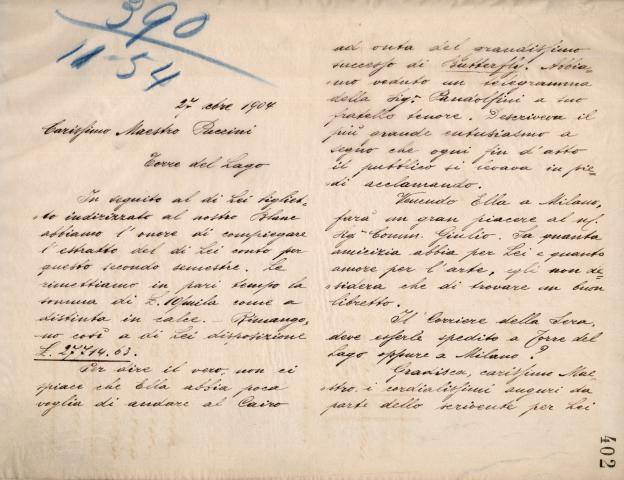 390
11-54
27 cbre 1904
Carissimo Maestro Puccini
Torre del Lago
In seguito al di Lei bigliet-
to indirizzato al nostro Blanc
abbiamo l'onore di compiegare
l'estratto del di Lei conto per
questo secondo semestre. Le
rimettiamo in pari tempo la
somma di £. 10/mila come a
distinta in calce. Rimango-
no così a di Lei disposizione
£. 27714.63.
Per dire il vero, non ci
spiace che Ella abbia poca
voglia di andare al Cairo
ad onta del grandissimo
successo di Butterfly! Abbia-
mo veduto un telegramma
della Sigra Pandolfini a suo
fratello tenore. Descriveva il
più grande entusiasmo a
segno che ogni fin d'atto
il pubblico si levava in pie-
di acclamando.
Venendo Ella a Milano,
farà un gran piacere al ns/
Sigr Comm. Giulio. Sa quanta
amicizia abbia per Lei e quanto
amore per l'arte, egli non de-
sidera che di trovare un buon
libretto.
Il Corriere della Sera,
deve esserle spedito a Torre del
Lago oppure a Milano?
Gradisca, carissimo Mae-
stro, i cordialissimi auguri da
parte dello scrivente per Lei
402